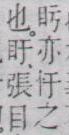 亦之
也。盱，張目